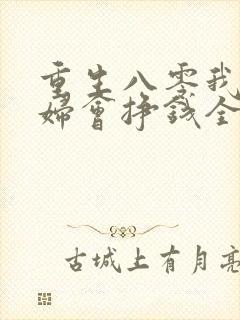 重生八零我
婦會掙錢全
古城上有月亮